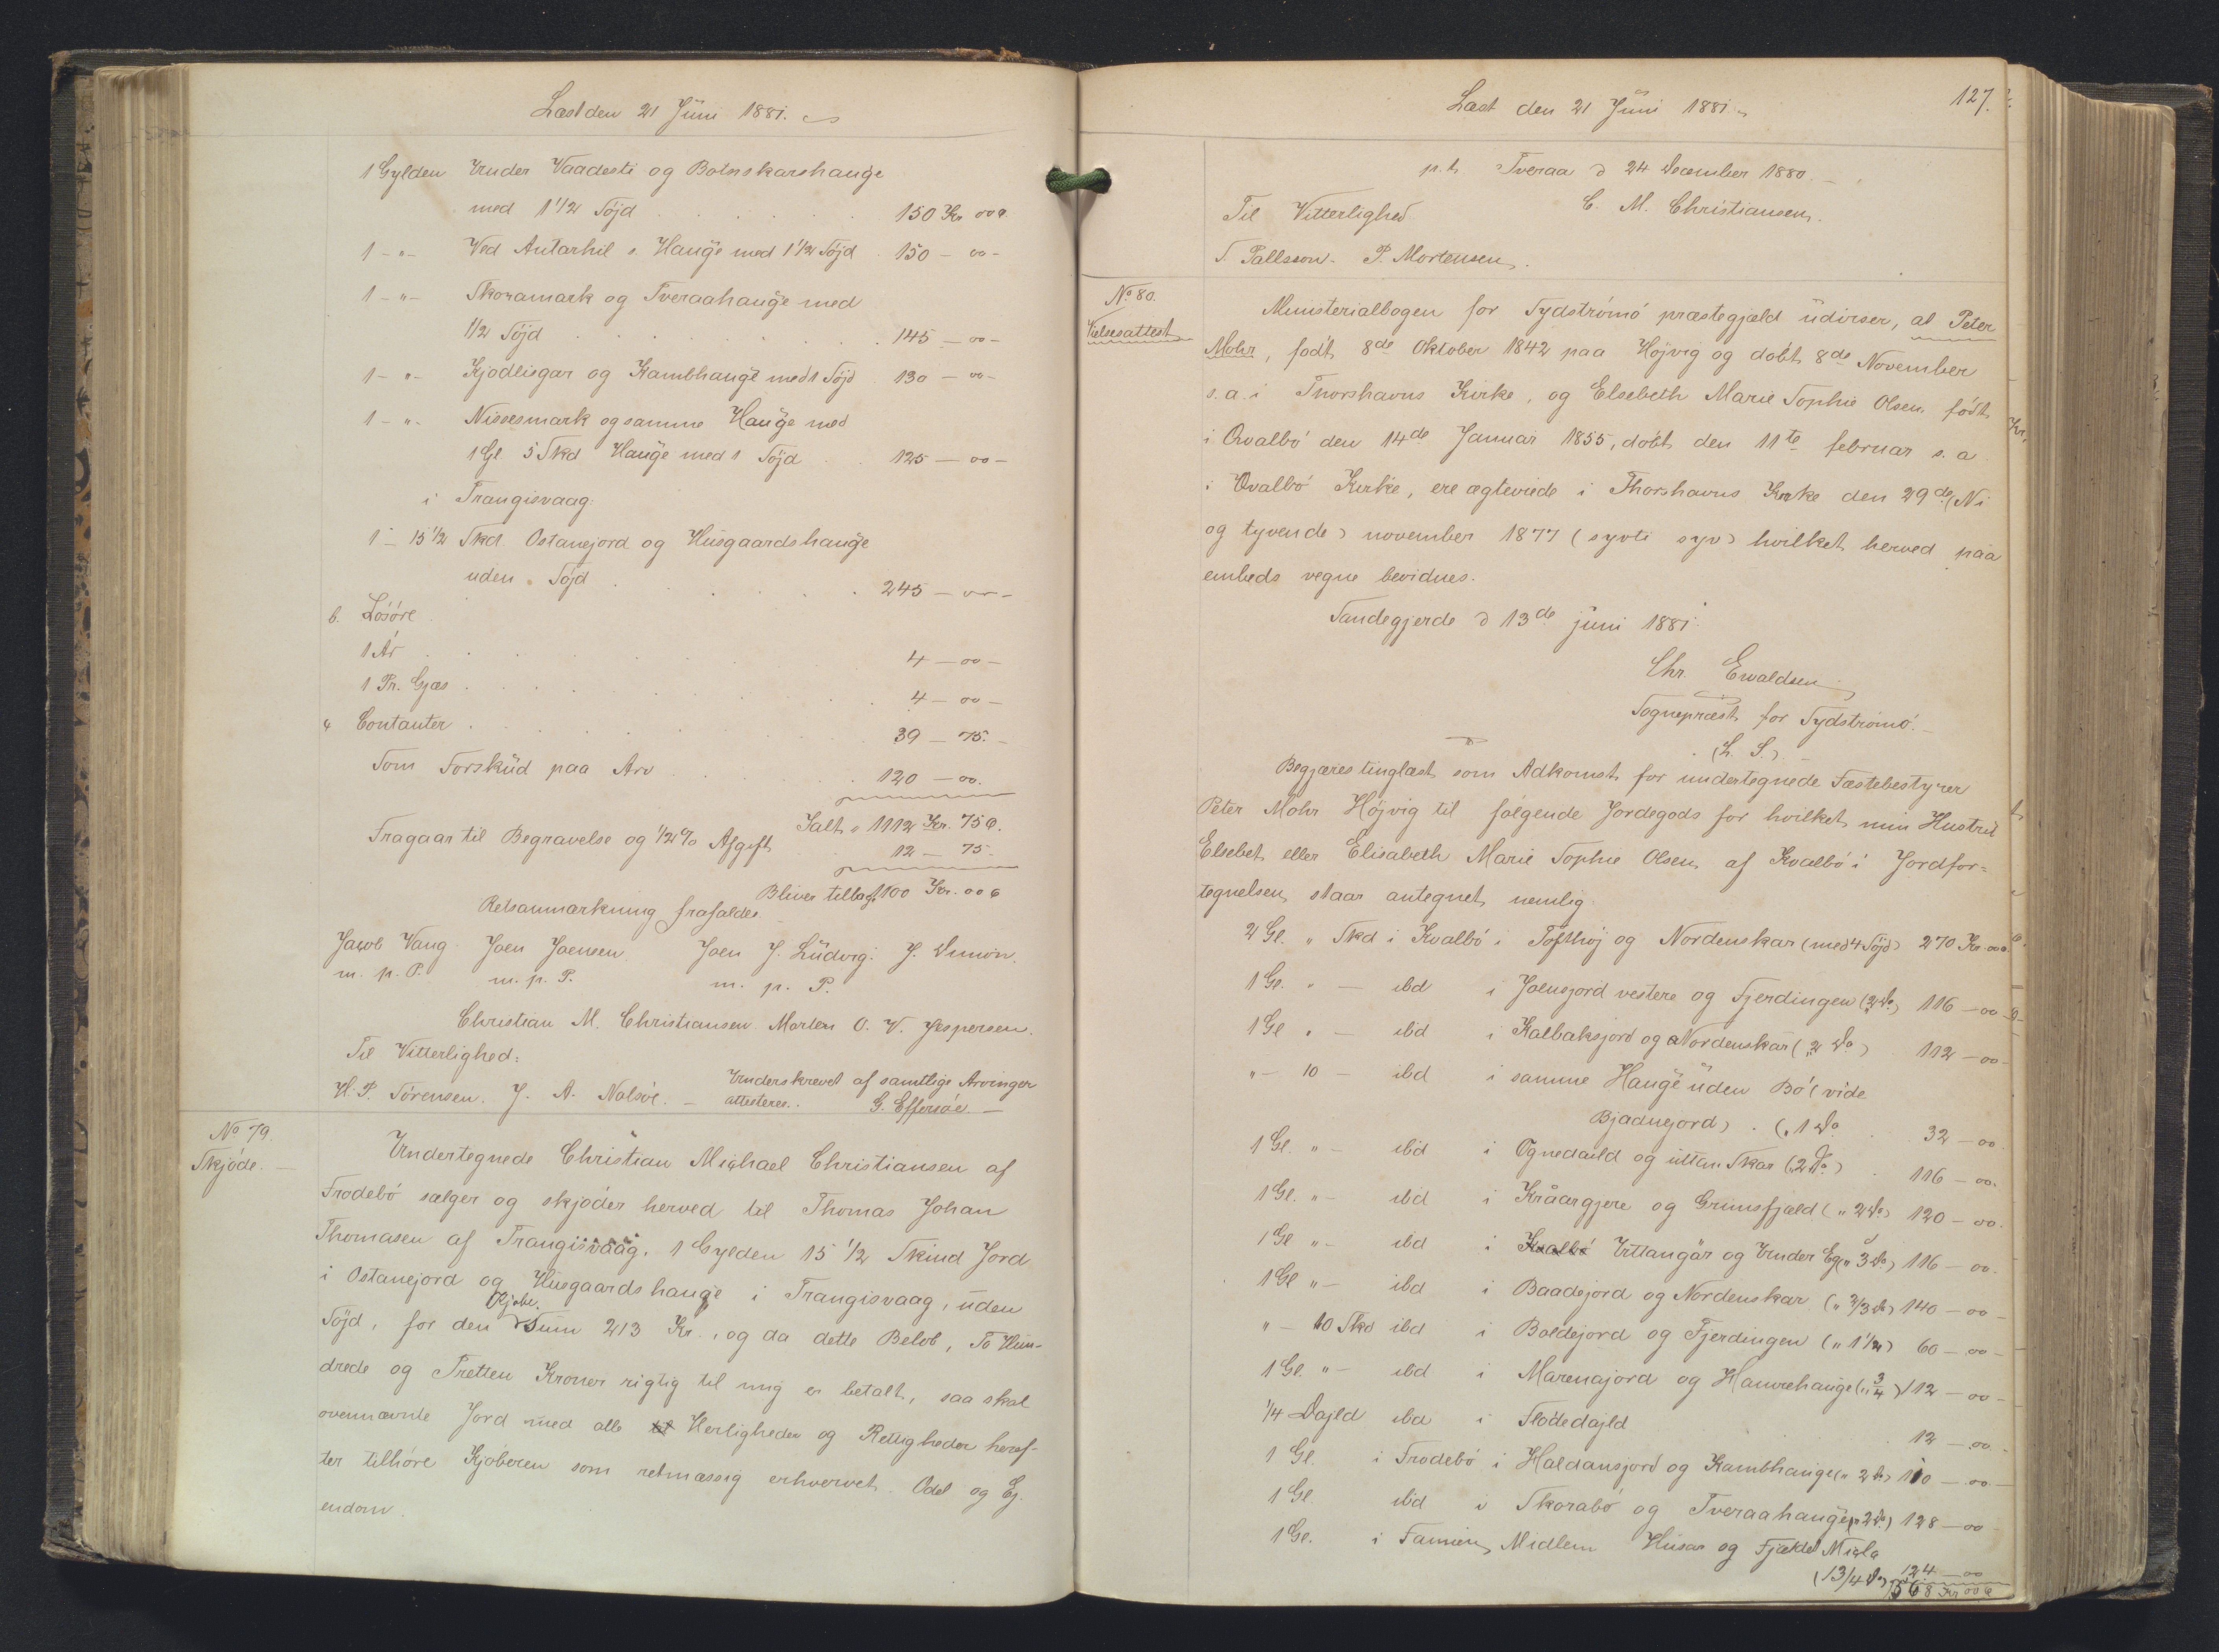 Læst den 21 Jüni 1881.
1 Gylden Under Vaadesti og Botnskarshauge
med 1 1/2 Söjd 150 Kr 00 Ø.
1 - " - Ved Antarhil s. Hauge med 1 1/2 Söjd 150 - 00 -
1 - " - Skoramark og Tveraahauge med
1/2 Söjd 145 - 00 -
1 - " - Kjodlisgar og Kambhauge med 1 Söjd 130 - 00 -
1 - " - Nissesmark og samme Hauge med
1 Gl 5 Skd Hauge med 1 Söjd 125 - 00 -
i Trangisvaag:
1 - 15 1/2 Skd Ostanejord og Husgaardshauge
uden Söjd 245 - 00 -
b. Lösöre
1 Ár 4 - 00 -
1 Pr. Gjæs 4 - 00 -
Contanter 39 - 75. -
Som Forsküd paa Arv 120 - 00.
Ialt " 1112 Kr. 75 Ø.
Fragaar til Begravelse og 1/2 % Afgift 12 - 75
Bliver tilbage 1100 Kr. 00 Ø
Retsanmærkning frafaldes
Jacob Vang Joen Joensen. Joen J. Lüdvig. J. Simon.
m. p. P. m. p. P. m. p. P.
Christian M. Christiansen Morten O. V. Jespersen.
Til Vitterlighed:
H. P. Sörensen. J. A. Nolsöe. - Underskrevet af samtlige Arvinger
attesteres. G. Effersöe. -
No 79.
Skjöde. -
Undertegnede Christian Michael Christiansen af
Frodebö sælger og skjöder herved til Thomas Johan
Thomasen af Trangisvaag. 1 Gylden 15 1/2 Skind Jord
i Ostanejord og Husgaardshauge i Trangisvaag, üden
Söjd, for den Kjöbe. Süm 213 Kr., og da dette Belöb, To Hün-
drede og Tretten Kroner rigtig til mig er betalt, saa skal
ovennævnte Jord med alle Herligheder og Rettigheder heref-
ter tilhöre Kjöberen som retmæssig erhvervet Odel og Ej-
endom.
Læst den 21 Jüni 1881.
127.
p. t. Tveraa d 24 December 1880. -
Til Vitterlighed C. M. Christiansen.
T. Pallsson. P. Mortensen.
No 80.
Vielsesattest
Ministerialbogen for Sydströmö præstegjæld üdviser, at Peter
Mohr, födt 8de Oktober 1842 paa Höjvig og döbt 8de November
s. a. i Thorshavns Kirke, og Elsebeth Marie Sophie Olsen födt
i Qvalbö den 14de Januar 1855, döbt den 11te februar s. a.
i Qvalbö Kirke, ere ægteviede i Thorshavns Kirke den 29de (Ni
og tyvende) november 1877 (syvti syv) hvilket herved paa
embeds vegne bevidnes.
Sandegjerde d 13de jüni 1881.
Chr. Evaldsen
Sognepræst for Sydströmö. -
(L. S.) -
Begjæres tinglæst som Adkomst for undertegnede Fæstebestyrer
Peter Mohr Höjvig til følgende Jordegods for hvilket min Hustrü
Elsebet eller Elisabeth Marie Sophie Olsen af Kvalbö i Jordfor=
tegnelsen staar antegnet nemlig
2 Gl. " Skd i Kvalbö i Tofthöj og Nordenskar (med 4 Söjd) 270 Kr. 00 Ø.
1 Gl. " - ibd i Joensjord vestere og Fjerdingen (2 Do.) 116 - 00 -
1 Gl " - ibd i Kalbaksjord og Nordenskar (" 2 Do) 112 - 00 -
" - 10 - ibd i samme Hauge üden Bö (vide
Bjadnejord) . (" 1 Do 32 - 00
1 Gl. " - ibd i Ognedaild og üttan Skar (" 2 Do.) 116 - 00.
1 Gl. " - ibd i Kråargjere og Grimsfjæld (" 2 Do) 120 - 00.
1 Gl " - ibd i Kvalbö Uttangar og Under Eg (" 3 Do) 116 - 00.
1 Gl " - ibd i Baadejord og Nordenskar (" 2/3 do) 140 - 00 -
" - 10 Skd ibd i Boldejord og Fjerdingen (" 1 1/2) 60 - 00 -
1 Gl. " - ibd i Marenajord og Hamrehauge (" 3/4) 112 - 00 -
1/4 Dajld ibd i Flodedajld 12 - 00. -
1 Gl. i Frodebö i Haldansjord og Kambhauge (" 2 Do) 110 - 00. -
1 Gl. ibd i Skorabö og Tveraahauge (" 2 Do) 128 - 00
1 Gl. i Famien Midlem Hüsar og Fjælde Migla
(1 3/4 Do) 124 - 00
1568 Kr 00 Ø